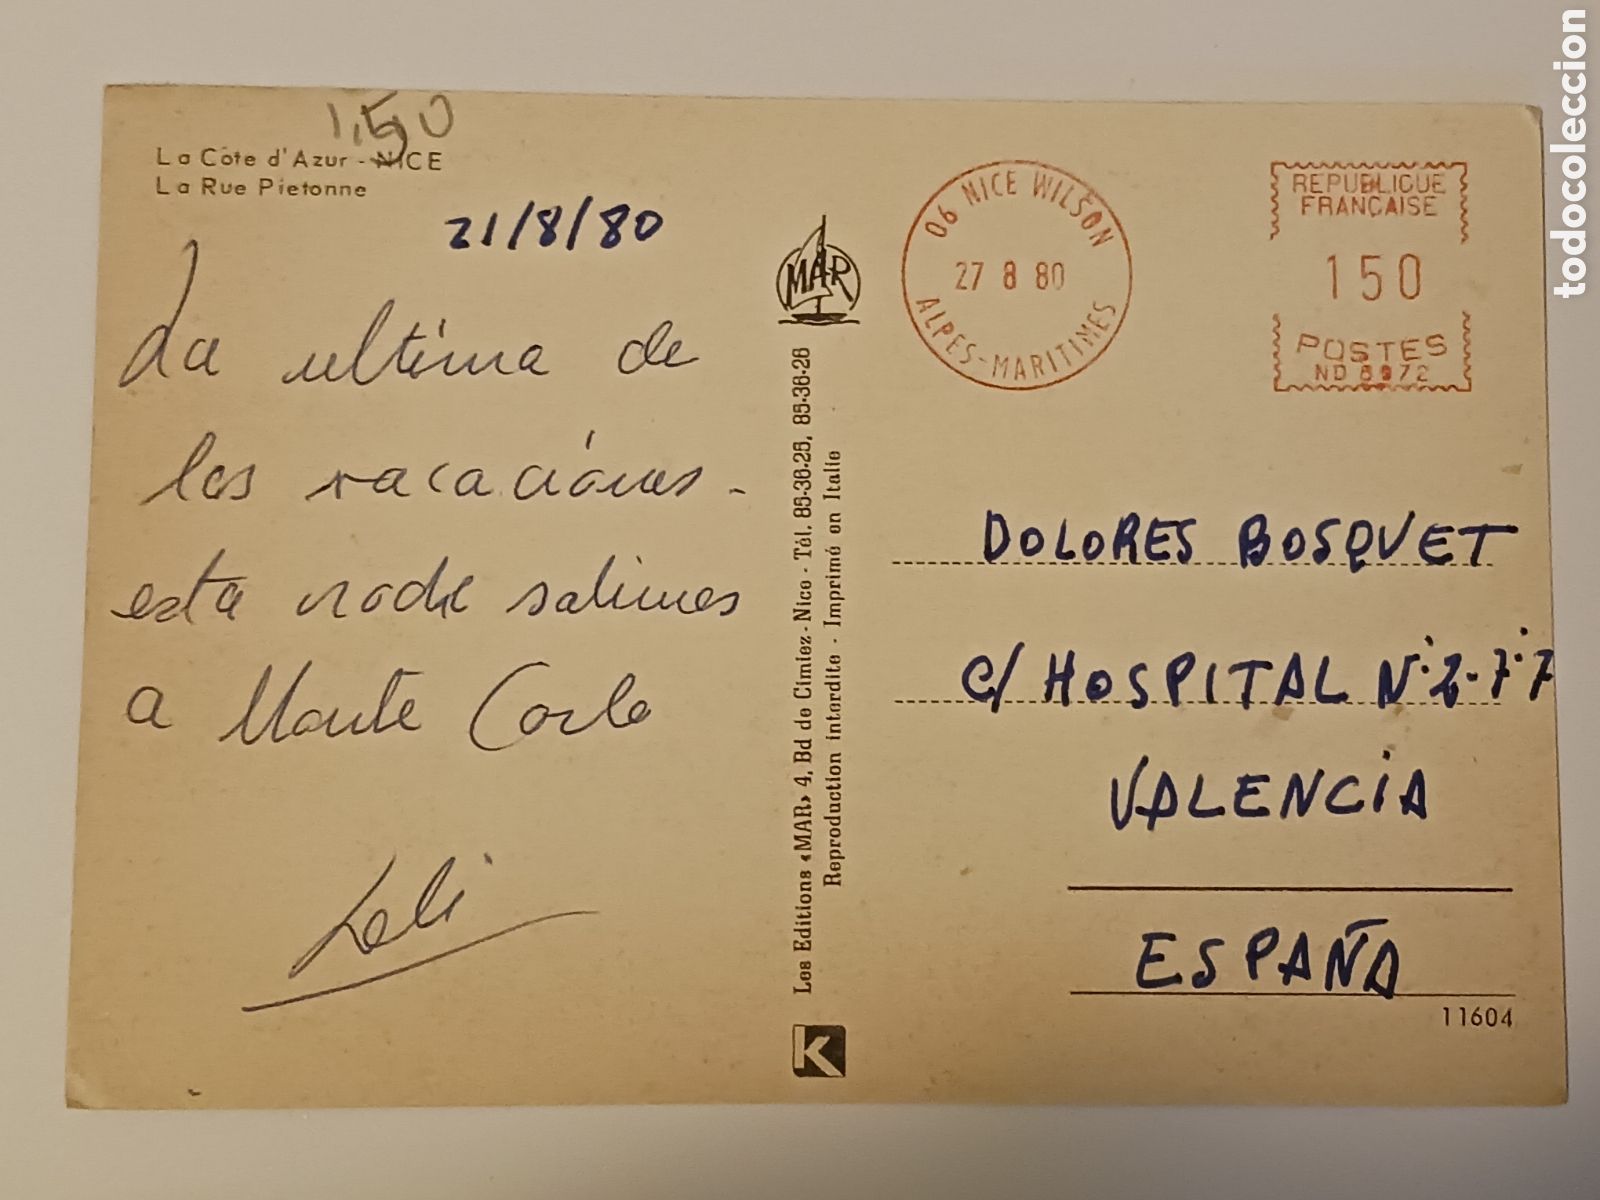 1,50
La Côte d'Azur - NICE
La Rue Pietonne
21/8/80
La ultima de
las vacaciónes -
esta noche salimos
a Monte Carlo
Loli
MAR
Les Editions «MAR» 4, Bd de Cimiez - Nice - Tél. 85-36-25, 85-36-26
Reproduction interdite - Imprimé en Italie
K
06 NICE WILSON
27 8 80
ALPES-MARITIMES
REPUBLIQUE
FRANCAISE
150
POSTES
ND 8972
DOLORES BOSQUET
C/ HOSPITAL Nº 2-7º-7
VALENCIA
ESPAÑA
11604
todocoleccion